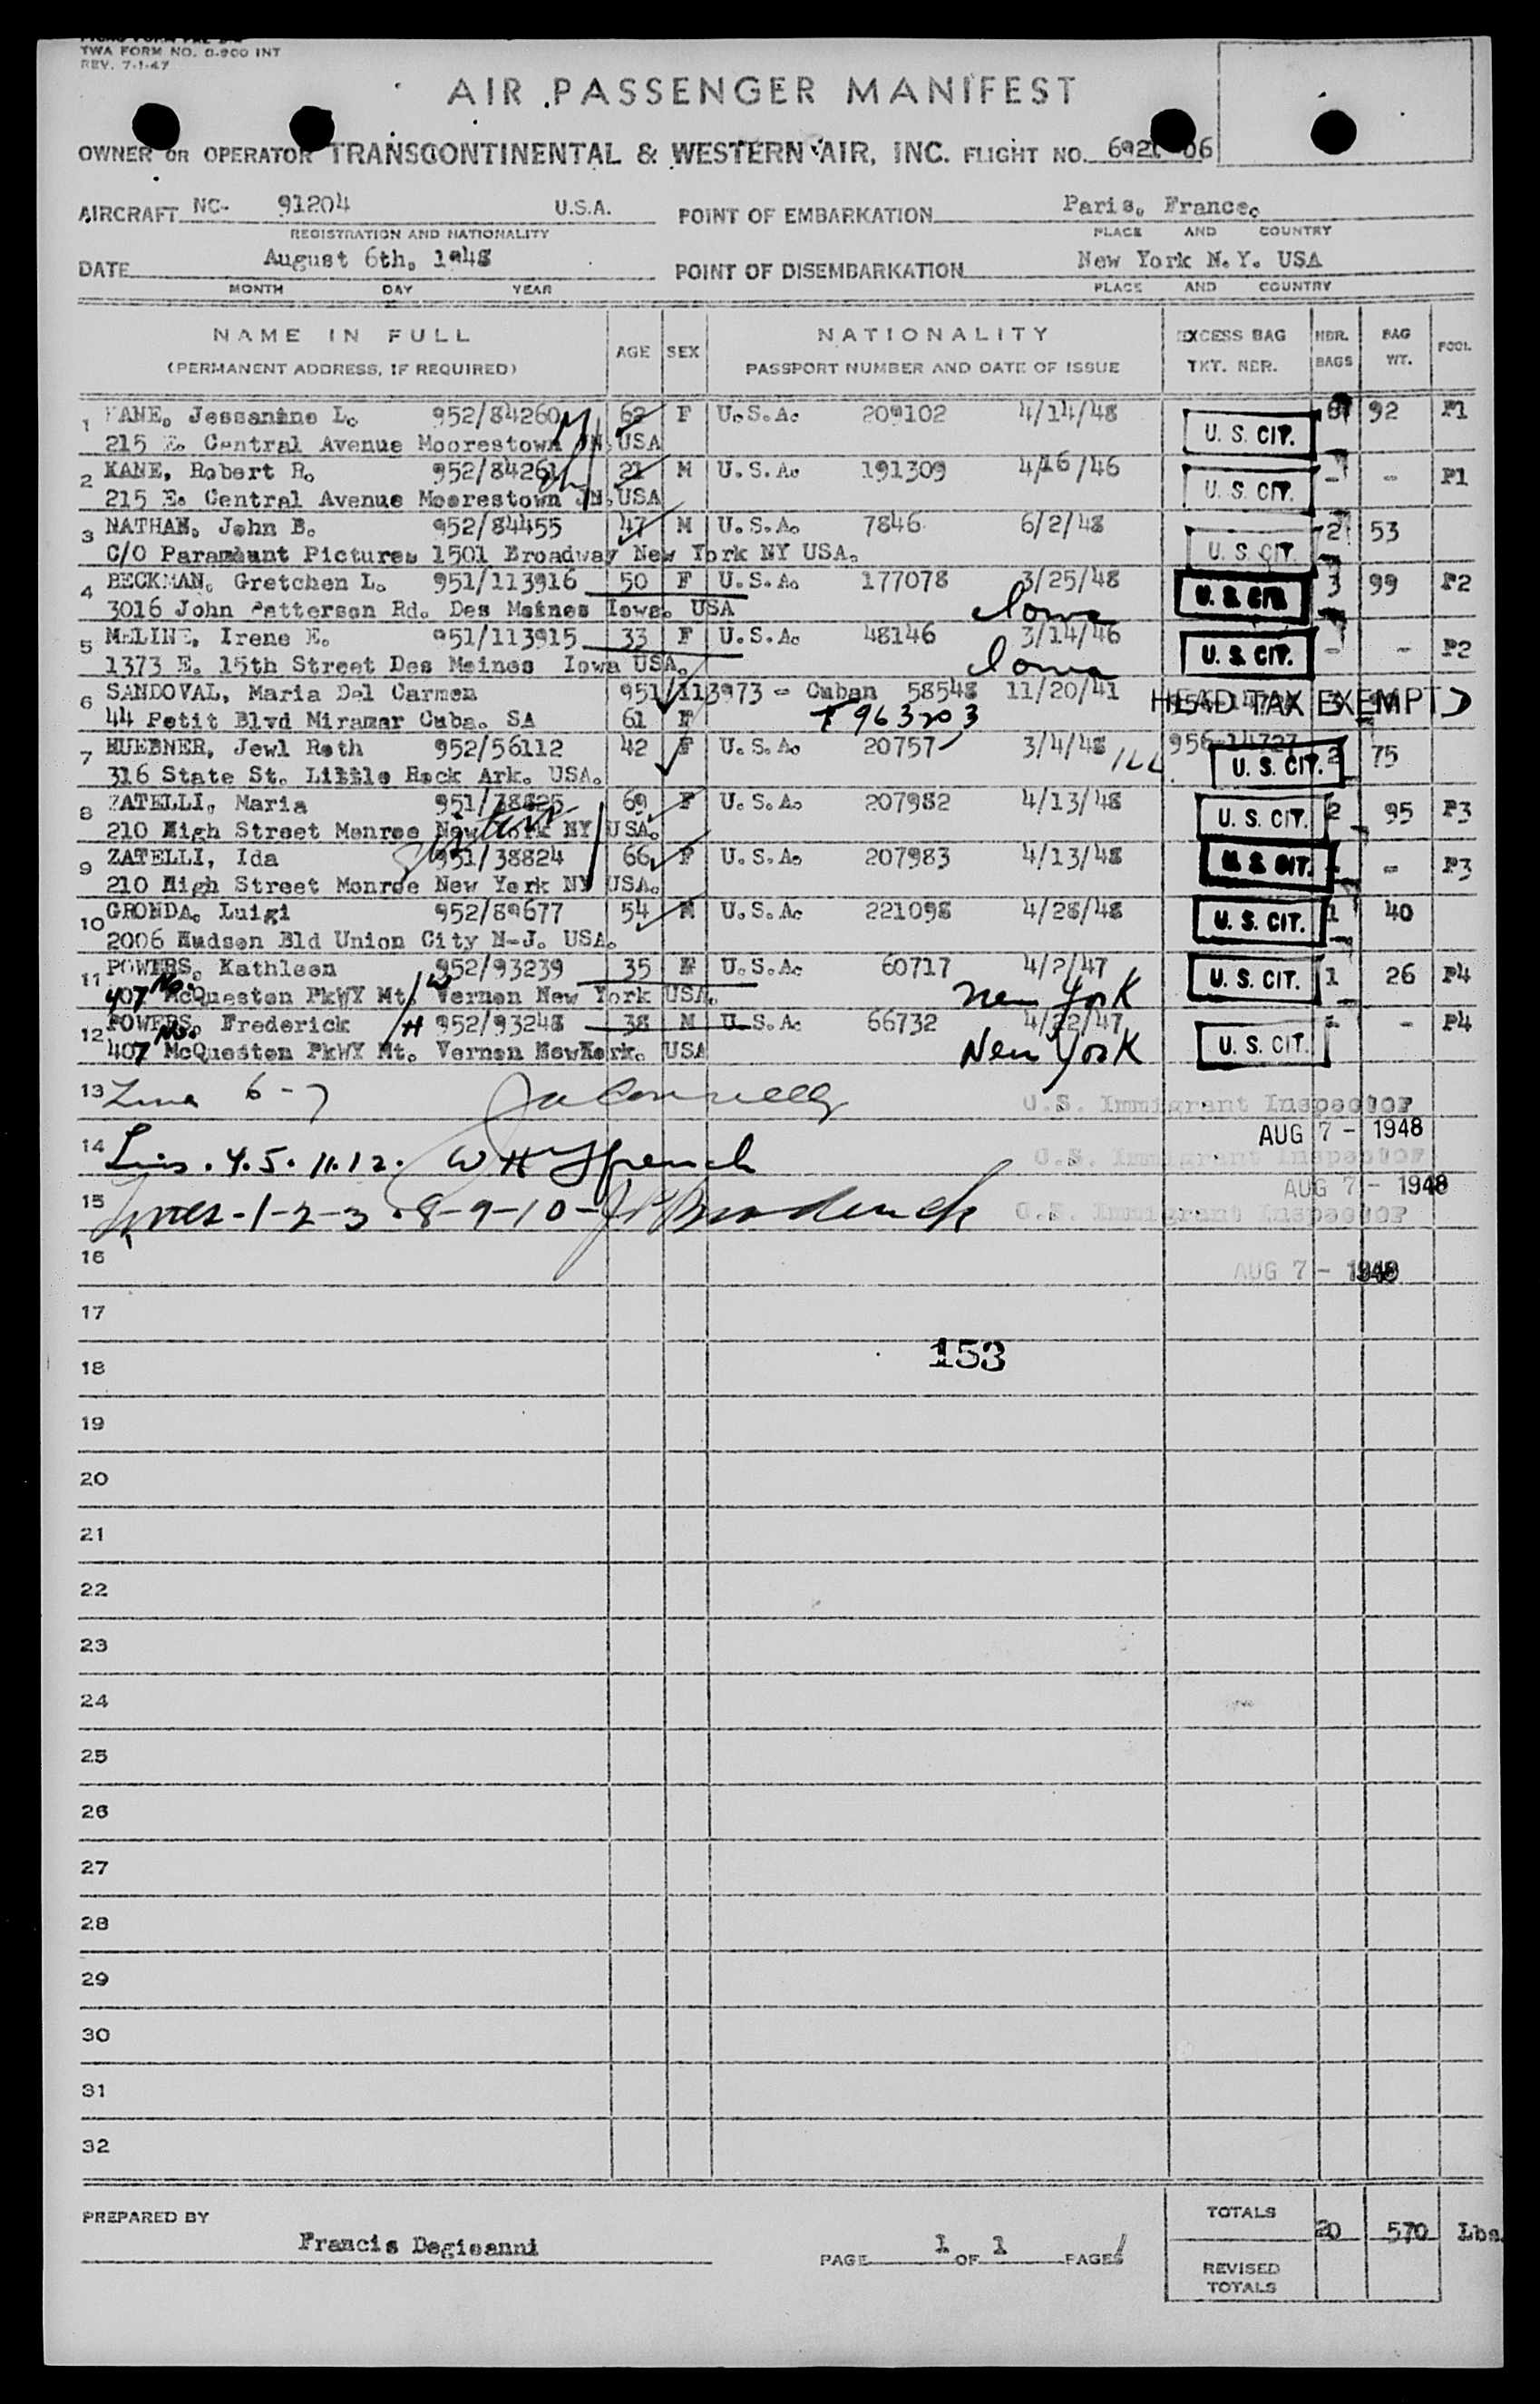 TWA FORM NO. 0-900 INT
REV. 7-1-47
AIR PASSENGER MANIFEST
OWNER OR OPERATOR TRANSCONTINENTAL & WESTERN AIR, INC. FLIGHT NO.
AIRCRAFT NC- 91204 U.S.A. POINT OF EMBARKATION Paris, France.
REGISTRATION AND NATIONALITY PLACE AND COUNTRY
DATE August 6th, 1948 POINT OF DISEMBARKATION New York N.Y. USA
MONTH DAY YEAR PLACE AND COUNTRY
NAME IN FULL AGE SEX NATIONALITY EXCESS BAG NBR. BAG POOL
(PERMANENT ADDRESS, IF REQUIRED) PASSPORT NUMBER AND DATE OF ISSUE TKT. NBR. BAGS WT.
1 KANE, Jessanine L. 952/84260 62 F U.S.A. 209102 4/14/48 U. S. CIT. 92 P1
215 E. Central Avenue Moorestown JN. USA
2 KANE, Robert R. 952/84261 21 M U.S.A. 191309 4/16/46 U. S. CIT. - - P1
215 E. Central Avenue Moorestown JN. USA
3 NATHAN, John B. 952/84455 47 M U.S.A. 7846 6/2/48 U. S. CIT. 2 53
C/O Paramount Pictures 1501 Broadway New York NY USA.
4 BECKMAN, Gretchen L. 951/113916 50 F U.S.A. 177078 3/25/48 U. S. CIT. 3 99 P2
3016 John Patterson Rd. Des Moines Iowa. USA Iowa
5 MELINE, Irene E. 951/113915 33 F U.S.A. 48146 3/14/46 U. S. CIT. - - P2
1373 E. 15th Street Des Moines Iowa USA. Iowa
6 SANDOVAL, Maria Del Carmen 951/113973 - Cuban 58548 11/20/41 HEAD TAX EXEMPT
44 Petit Blvd Miramar Cuba. SA 61 F 963203
7 HUEBNER, Jewl Roth 952/56112 42 F U.S.A. 20757 3/4/48 ILL. 956-14727 U. S. CIT. 2 75
316 State St. Little Rock Ark. USA.
8 ZATELLI, Maria 951/38825 69 F U.S.A. 207982 4/13/48 U. S. CIT. 2 95 P3
210 High Street Monroe New York NY USA.
9 ZATELLI, Ida 951/38824 66 F U.S.A. 207983 4/13/48 U. S. CIT. - - P3
210 High Street Monroe New York NY USA.
10 GRONDA, Luigi 952/89677 54 M U.S.A. 221098 4/28/48 U. S. CIT. 1 40
2006 Hudson Bld Union City N-J. USA.
11 POWERS, Kathleen 952/93239 35 F U.S.A. 60717 4/2/47 U. S. CIT. 1 26 P4
407 No. McQuesten PkWY Mt. W Vernon New York USA. New York
12 POWERS, Frederick H 952/93248 38 M U.S.A. 66732 4/22/47 U. S. CIT. - - P4
407 No. McQuesten PkWY Mt. Vernon NewYork. USA New York
13 6-7 U.S. Immigrant Inspector
AUG 7 - 1948
14 4.5.11.12. W H French U.S. Immigrant Inspector
AUG 7 - 1948
15 Lines-1-2-3-8-9-10- U.S. Immigrant Inspector
16 AUG 7 - 1948
17
153
18
19
20
21
22
23
24
25
26
27
28
29
30
31
32
PREPARED BY Francis Degioanni PAGE 1 OF 1 PAGES TOTALS 20 570 Lbs.
REVISED TOTALS